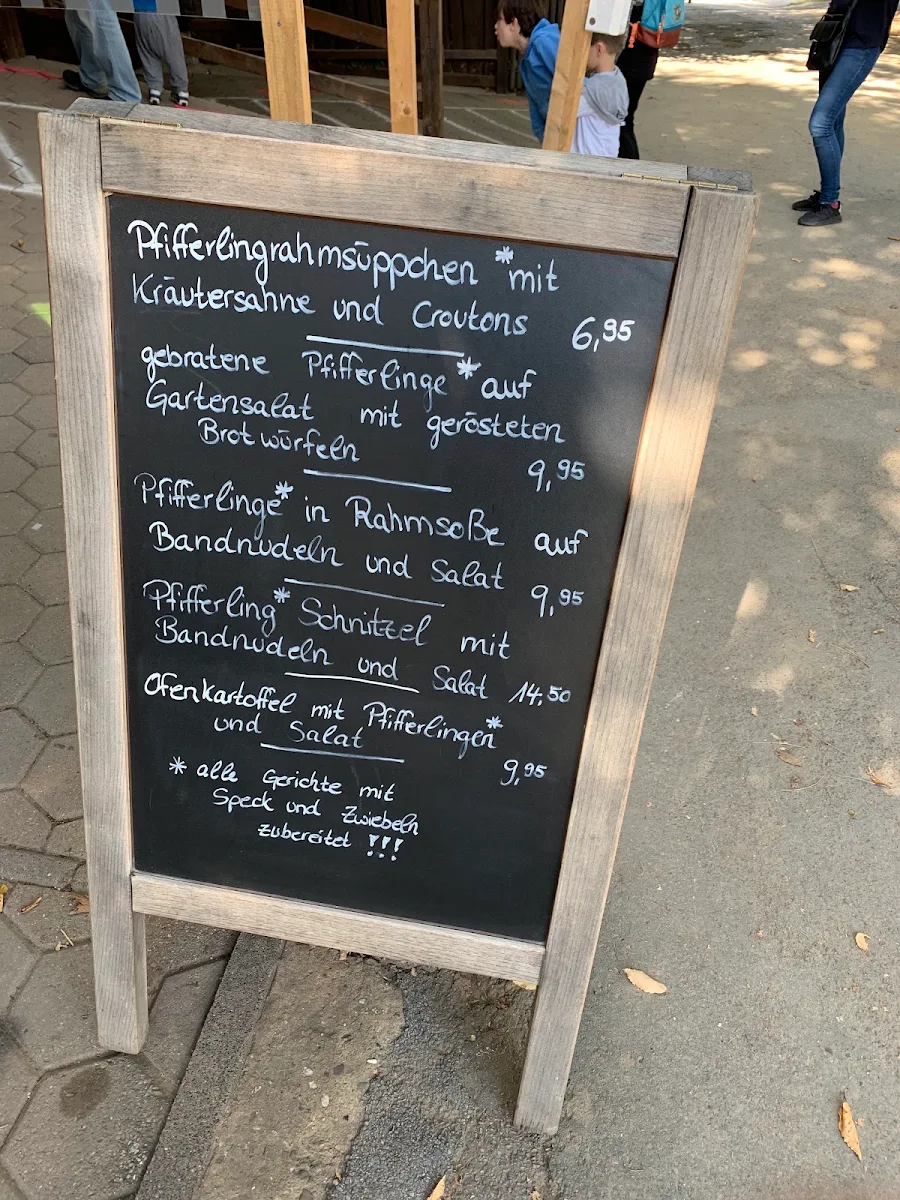 Pfifferlingrahmsüppchen * mit
Kräutersahne und Croutons 6,95
gebratene Pfifferlinge * auf
Gartensalat mit gerösteten
Brotwürfeln 9,95
Pfifferlinge* in Rahmsoße auf
Bandnudeln und Salat 9,95
Pfifferling* Schnitzel mit
Bandnudeln und Salat 14,50
Ofenkartoffel mit Pfifferlingen*
und Salat 9,95
* alle Gerichte mit
Speck und Zwiebeln
zubereitet !!!